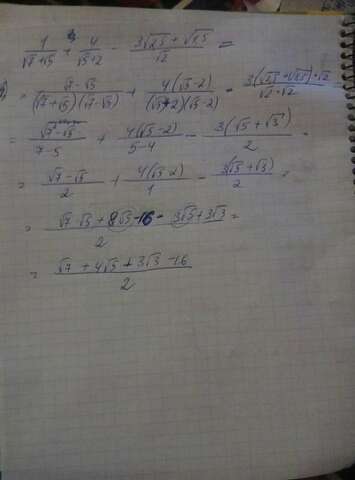 1/(√7+√5) + 4/(√5+2) - (3√2,5 + √1,5)/√2 =
= (√7-√5)/((√7+√5)(√7-√5)) + 4(√5-2)/((√5+2)(√5-2)) - 3(√2,5+√1,5)·√2/(√2·√2)
= (√7-√5)/(7-5) + 4(√5-2)/(5-4) - 3(√5+√3)/2 =
= (√7-√5)/2 + 4(√5-2)/1 - 3(√5+√3)/2 =
= (√7-√5+8√5-16-3√5+3√3)/2 =
= (√7+4√5+3√3-16)/2